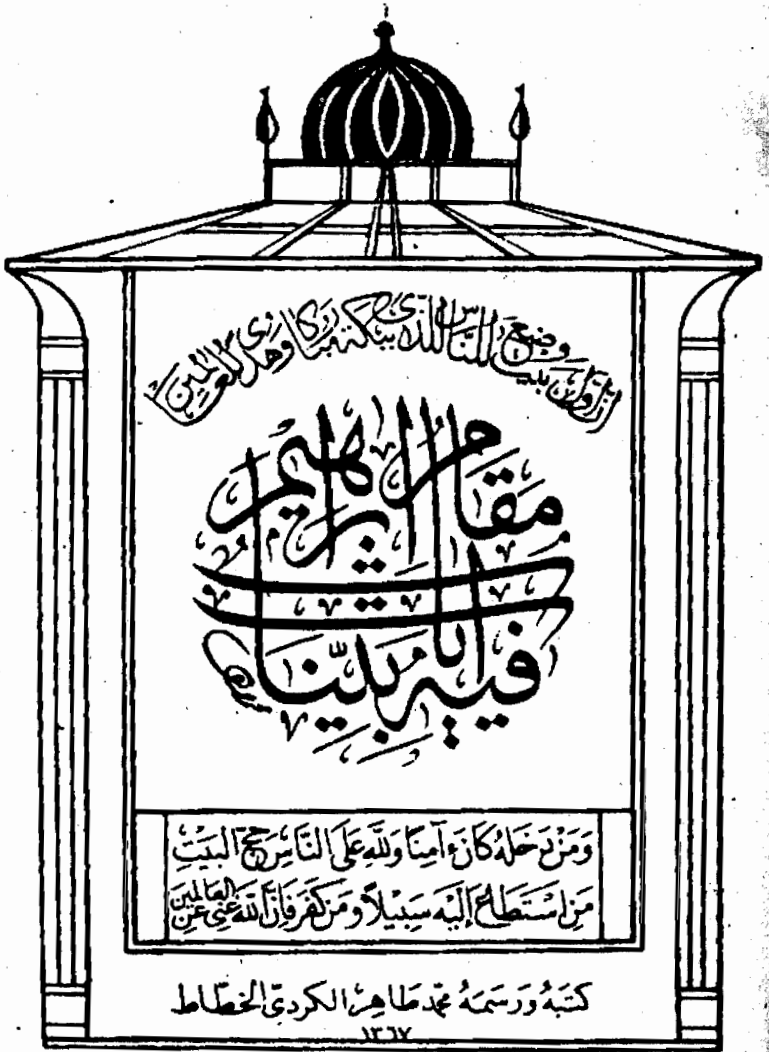 إن أول بيت وضع للناس للذي ببكة مباركا وهدى للعالمين
فيه آيات بينات
مقام إبراهيم
وَمَنْ دَخَلَهُ كَانَ ءَامِنًا وَلِلَّهِ عَلَى النَّاسِ حِجُّ الْبَيْتِ
مَنِ اسْتَطَاعَ إِلَيْهِ سَبِيلًا وَمَن كَفَرَ فَإِنَّ اللَّهَ غَنِيٌّ عَنِ الْعَالَمِينَ
كتبه ورسمه محمد طاهر الكردي الخطاط
١٣٦٧